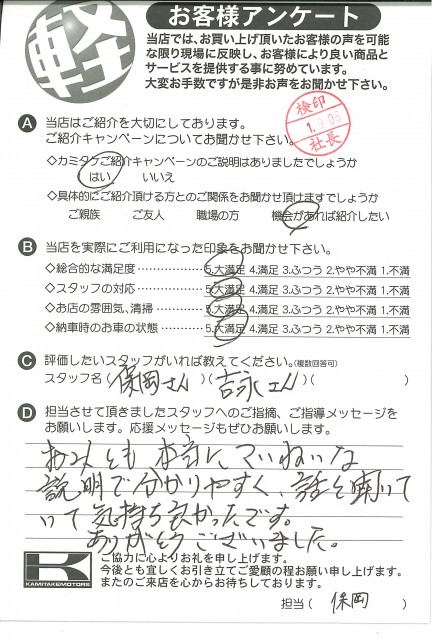 軽
お客様アンケート
当店では、お買い上げ頂いたお客様の声を可能
な限り現場に反映し、お客様により良い商品と
サービスを提供する事に努めています。
大変お手数ですが是非お声をお聞かせ下さい。
検印
社長
A 当店はご紹介を大切にしております。
ご紹介キャンペーンについてお聞かせ下さい。
◇カミタケご紹介キャンペーンのご説明はありましたでしょうか
はい いいえ
◇具体的にご紹介頂ける方とのご関係をお聞かせ頂けますでしょうか
ご親族 ご友人 職場の方 機会があれば紹介したい
B 当店を実際にご利用になった印象をお聞かせ下さい。
◇総合的な満足度 5.大満足 4.満足 3.ふつう 2.やや不満 1.不満
◇スタッフの対応 5.大満足 4.満足 3.ふつう 2.やや不満 1.不満
◇お店の雰囲気、清掃 5.大満足 4.満足 3.ふつう 2.やや不満 1.不満
◇納車時のお車の状態 5.大満足 4.満足 3.ふつう 2.やや不満 1.不満
C 評価したいスタッフがいれば教えてください。(複数回答可)
スタッフ名 (保岡さん)(吉永さん)( )
D 担当させて頂きましたスタッフへのご指摘、ご指導メッセージを
お願いします。応援メッセージもぜひお願いします。
お2人とも 本当に ていねいな
説明で分かりやすく、話を聞いて
いて気持ち良かったです。
ありがとうございました。
K
KAMITAKEMOTORS
ご協力に心よりお礼を申し上げます。
今後とも宜しくお引き立てご愛顧の程お願い申し上げます。
またのご来店を心からお待ちしております。
担当( 保岡 )